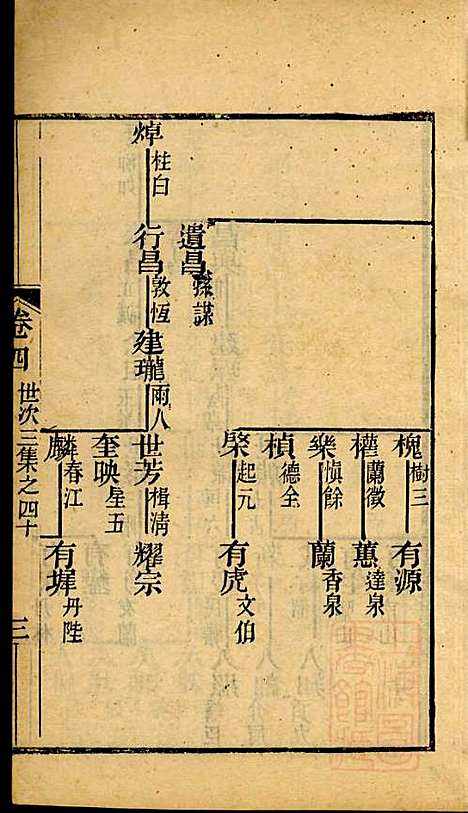 槐 樹三 有源
權 蘭徵 蕙 達泉
樂 愼餘 蘭 香泉
楨 德全
棨 起元 有虎 文伯
遺昌 孫謀
焯 桂白 行昌 敦恆 建瓏 雨人 世芳 楫淸 耀宗
奎映 星五
麟 春江 有墀 丹陛
卷四 世次三集之四十 三